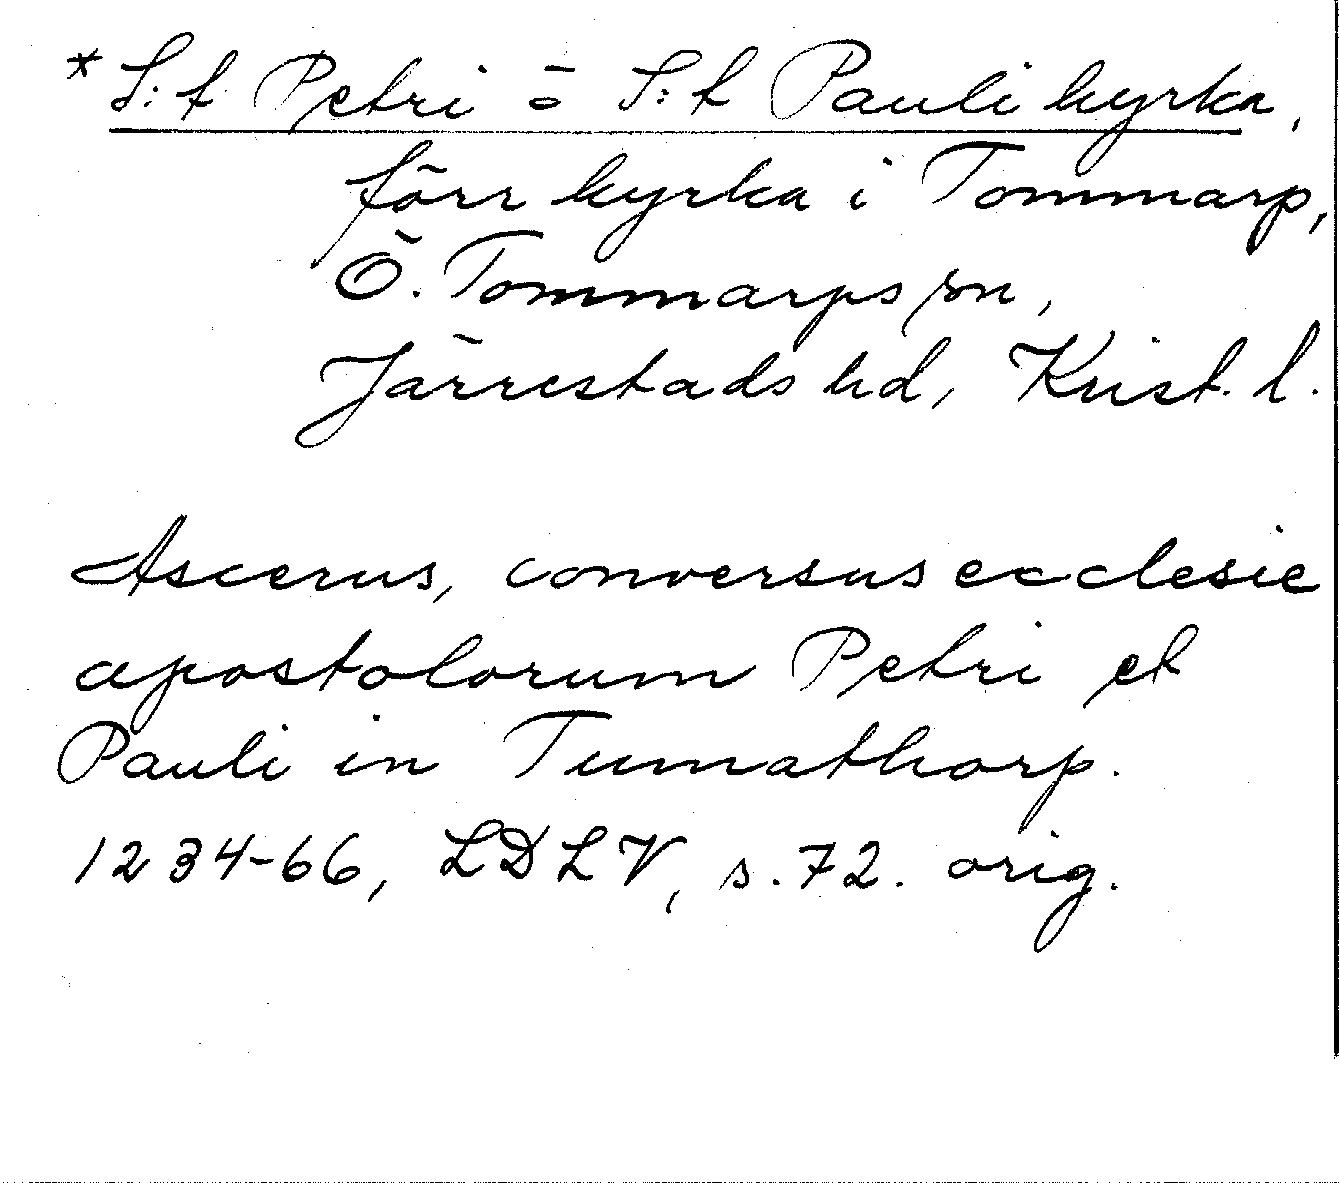 * S:t Petri o S:t Pauli kyrka,
förr kyrka i Tommarp,
Ö. Tommarps sn,
Järrestads hd, Krist. l.
Ascerus, conversus ecclesie
apostolorum Petri et
Pauli in Tumathorp.
1234-66, LDLV, s. 72. orig.